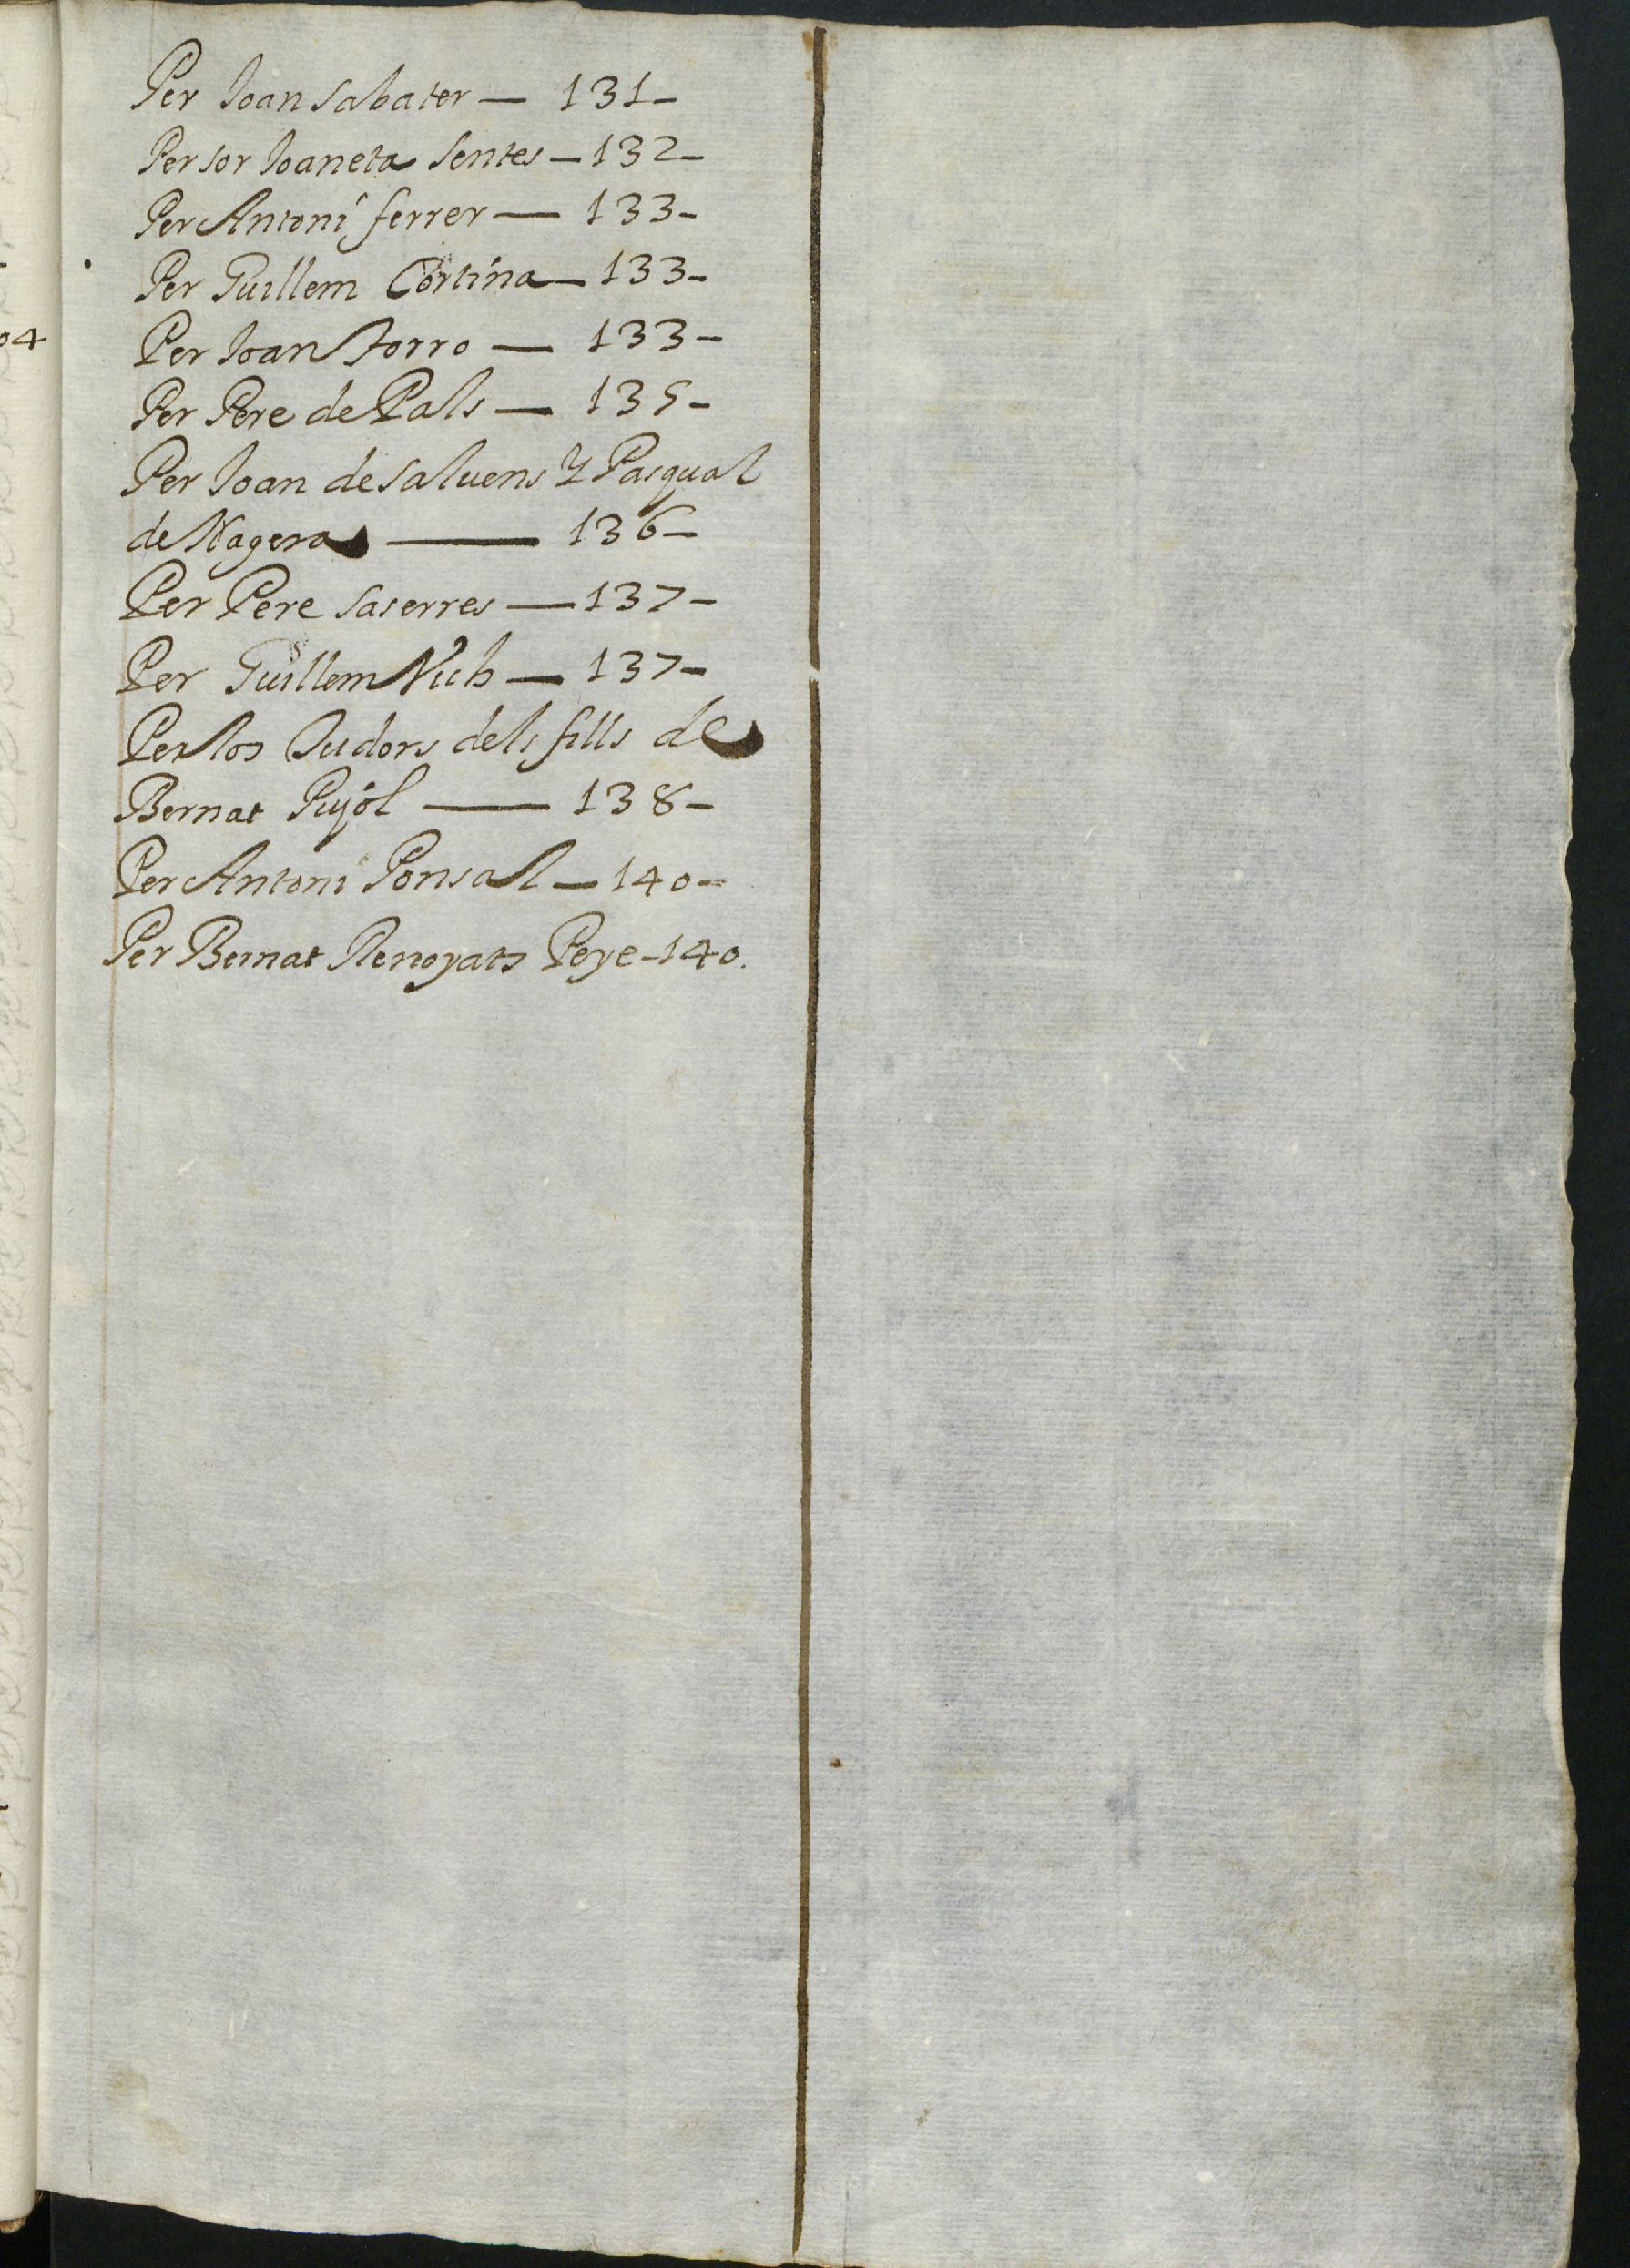 Per Joan Sabater — 131-
Per sor Joaneta Sentes — 132-
Per Antoni ferrer — 133-
Per Guillem Cortina — 133-
Per Joan Torro — 133-
Per Pere de Pals — 135-
Per Joan de saluens Y Pasqual
de Nagera — 136-
Per Pere Saserres — 137-
Per Guillem Vich — 137-
Per los Tudors dels fills de
Bernat Pujol — 138-
Per Antoni Ponsal — 140-
Per Bernat 140.
04